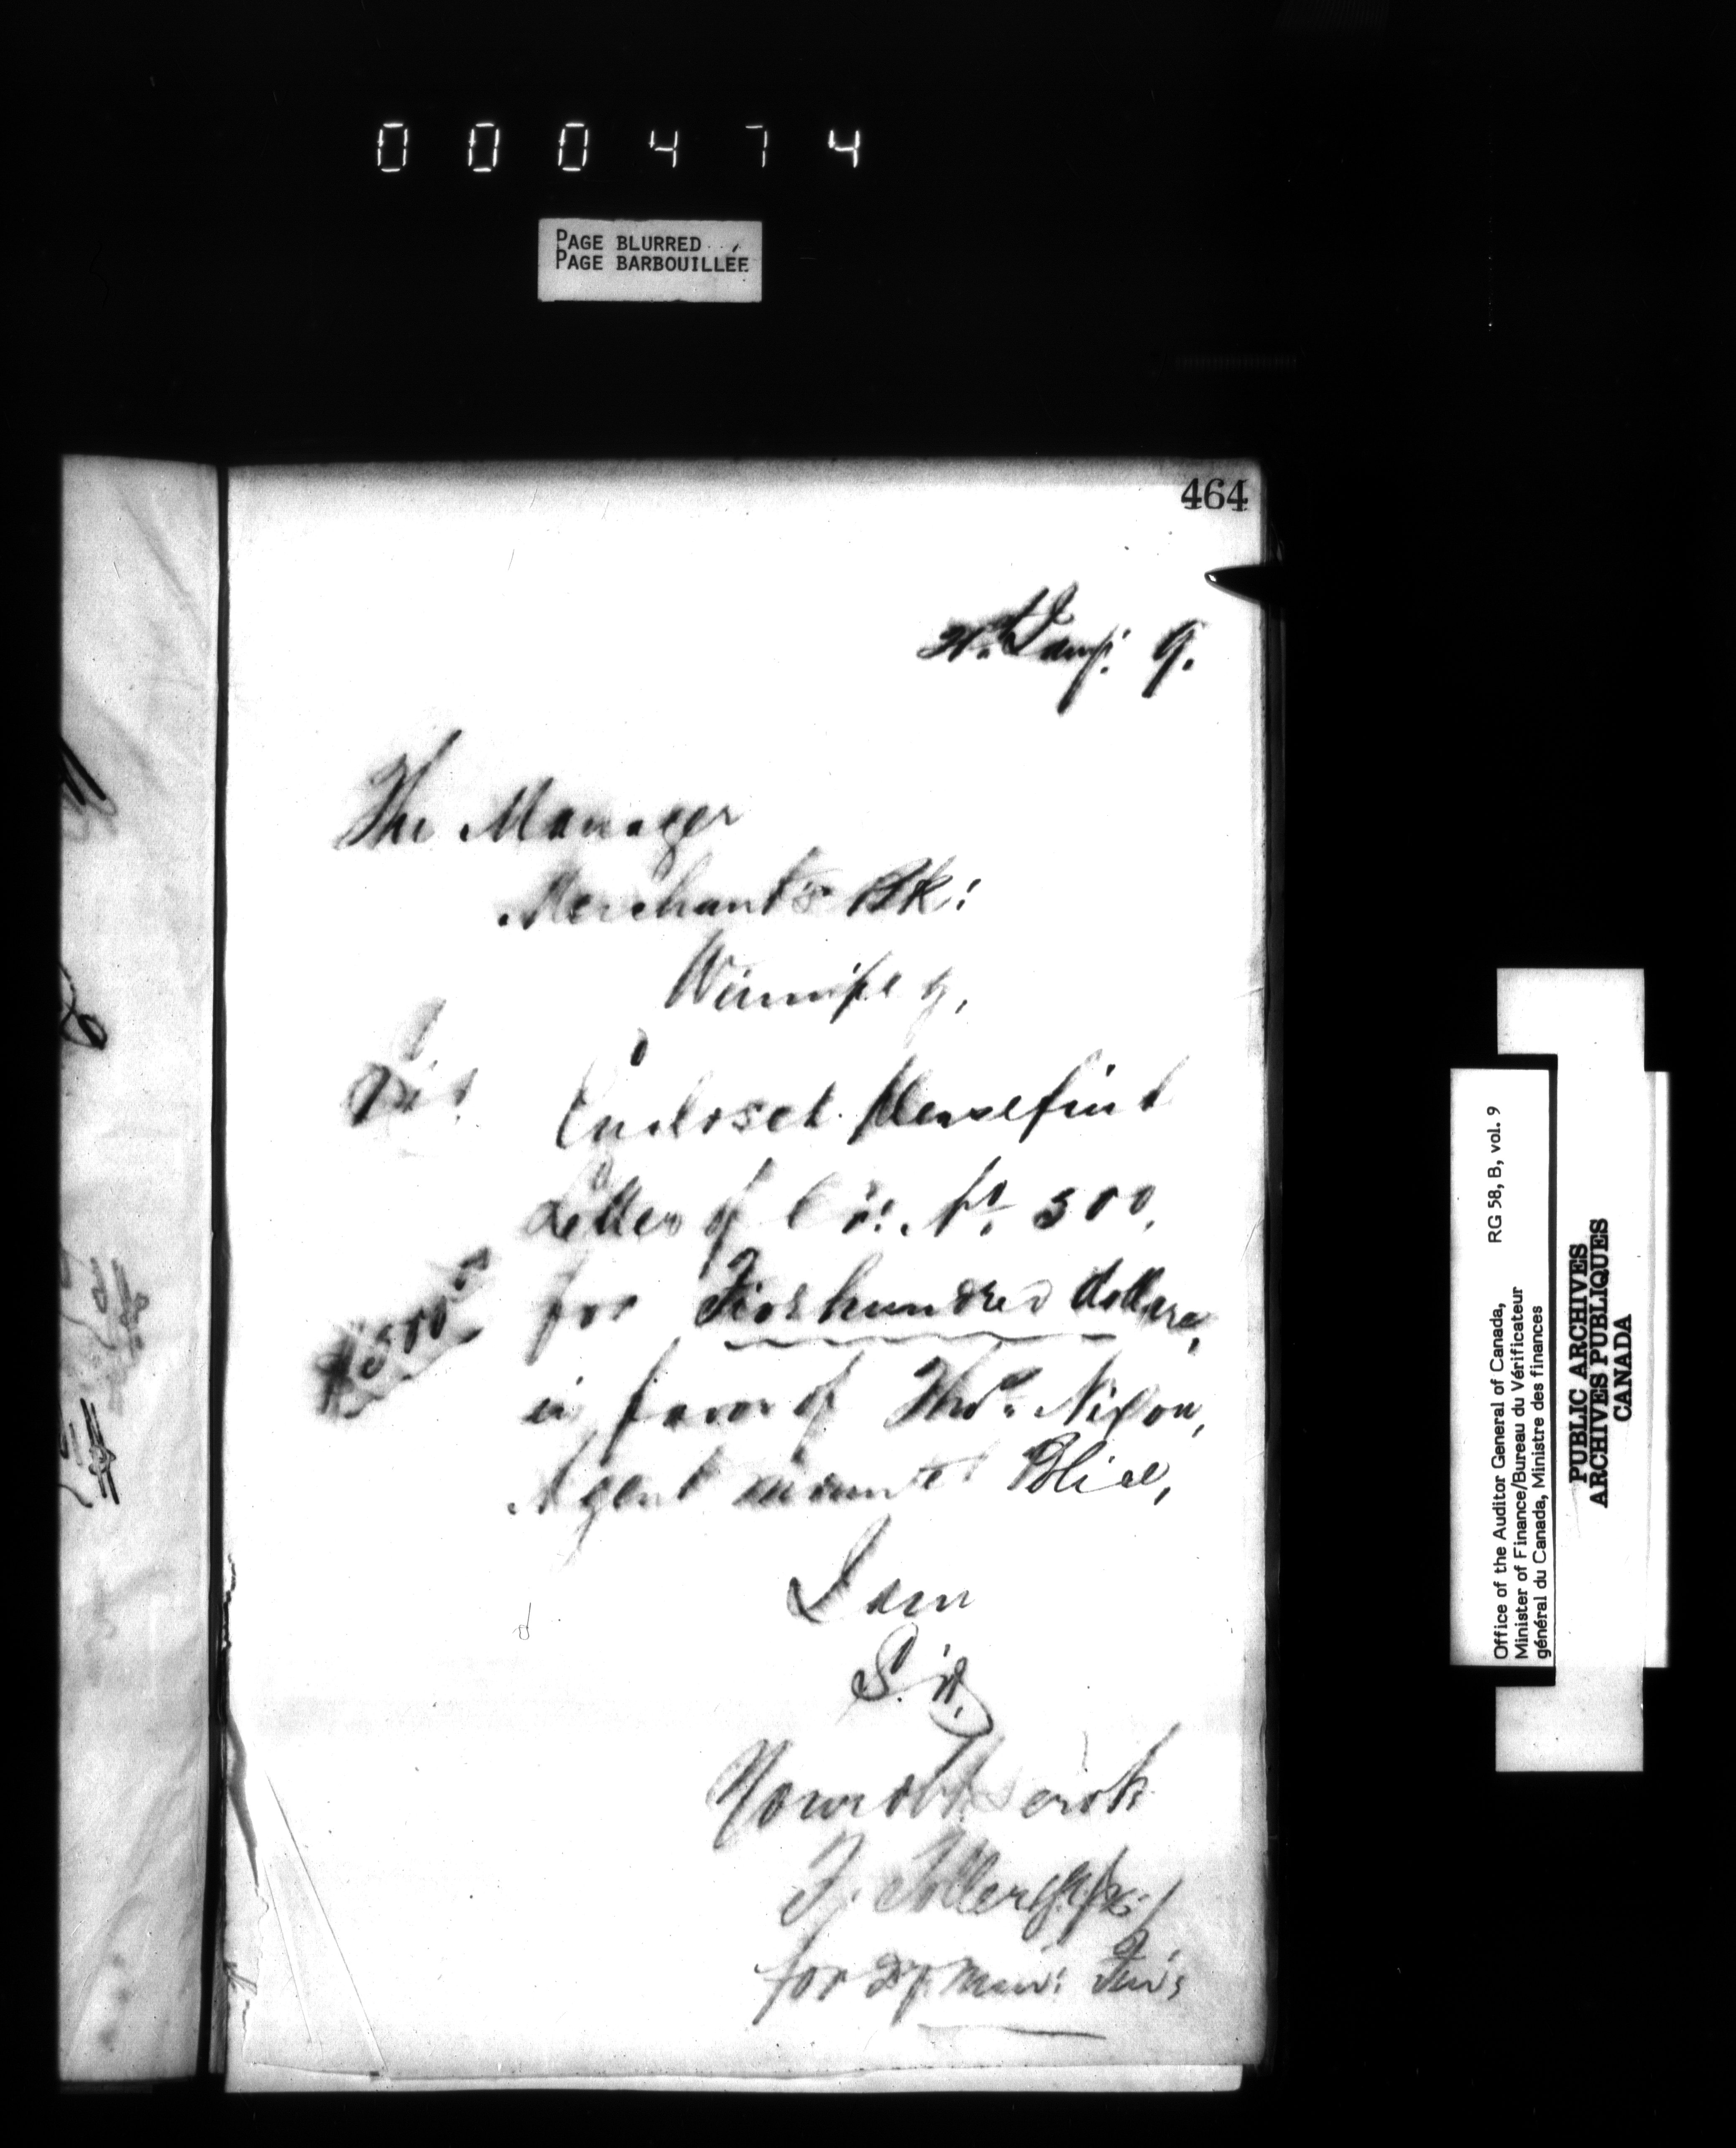 000474
PAGE BLURRED
PAGE BARBOUILLÉE
464
9.
The Manager
Merchant's Bk:
Winnipeg,
Sir!
Enclosed Please find
Letter of Cr: No. 500,
$500.00
for Five hundred dollars,
in favor of Thos. Nixon,
Agent mounted Police,
I am
Sir,
Your obt servt
for Dy Min: Fin:
Office of the Auditor General of Canada, RG 58, B, vol. 9
Minister of Finance/Bureau du Vérificateur
général du Canada, Ministre des finances
PUBLIC ARCHIVES
ARCHIVES PUBLIQUES
CANADA